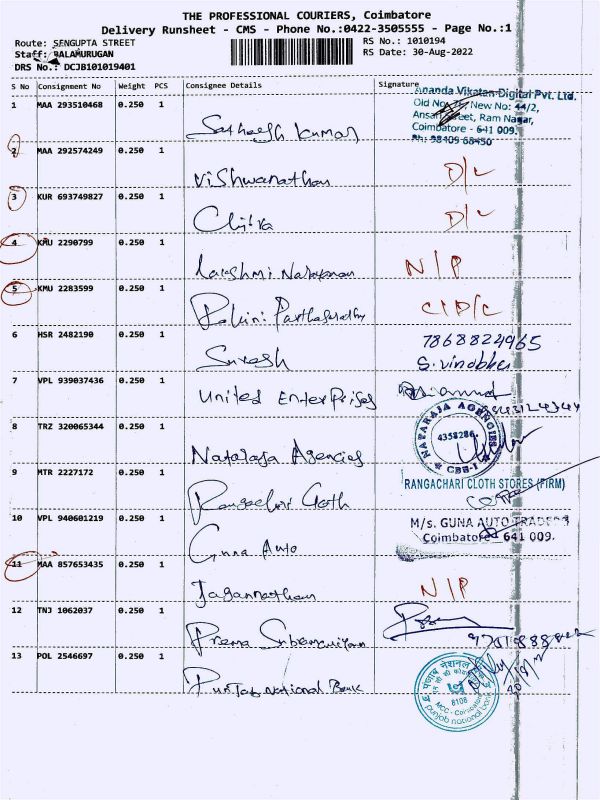 THE PROFESSIONAL COURIERS, Coimbatore
Delivery Runsheet - CMS - Phone No.:0422-3505555 - Page No.:1
Route: SENGUPTA STREET
RS No.: 1010194
Staff: BALAMURUGAN
RS Date: 30-Aug-2022
DRS No.: DCJB101019401
S No Consignment No Weight PCS Consignee Details Signature
Ananda Vikatan Digital Pvt. Ltd.
1 MAA 293510468 0.250 1
Old No. New No: 44/2,
Ansari Street, Ram Nagar,
Satheesh Kumar
Coimbatore - 641 009.
Ph: 98409 68450
2 MAA 292574249 0.250 1
Vishwanathan D/L
3 KUR 693749827 0.250 1
Chitra D/L
4 KMU 2290799 0.250 1
Lakshmi Narayanan N/P
5 KMU 2283599 0.250 1
Parthasarathy
6 HSR 2482190 0.250 1 7868824965
Suresh
7 VPL 939037436 0.250 1
United Enterprises
8 TRZ 320065344 0.250 1
NATARAJA AGENCIES
4358286
CBE-1
Nataraja Agencies
9 MTR 2227172 0.250 1
RANGACHARI CLOTH STORES (FIRM)
Rangachari Cloth
10 VPL 940601219 0.250 1
M/s. GUNA AUTO TRADERS
Coimbatore 641 009.
Guna Auto
11 MAA 857653435 0.250 1
Jagannathan N/P
12 TNJ 1062037 0.250 1
Prema
13 POL 2546697 0.250 1
Punjab National Bank
पंजाब नैशनल बैंक
8108
MCC - Coimbatore
punjab national bank